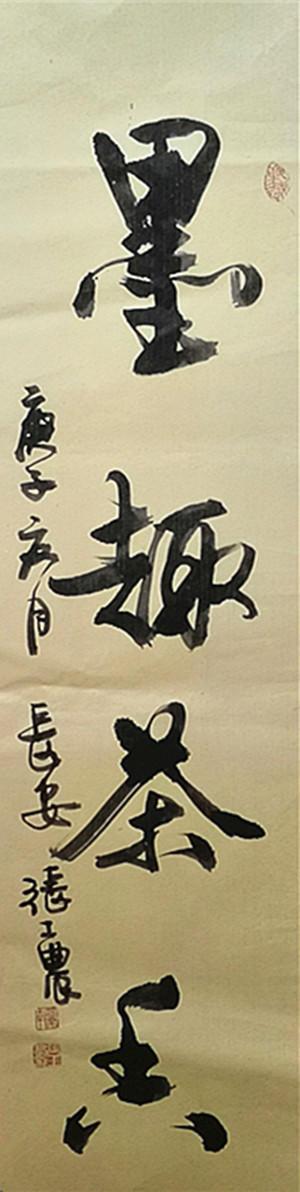 墨趣茶香
庚子亥月 長安 張工農